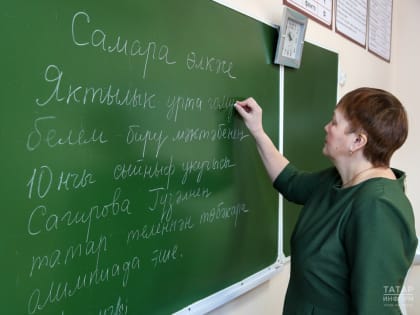 Самара өлкәсе
Яктылык урта гомуми
белем бирү мәктәбенең
10 нчы сыйныф укучысы
Сагирова Гүзәлнең
татар теленнән төбәкара
олимпиада эше.
ТАТАР
ИНФОРМ